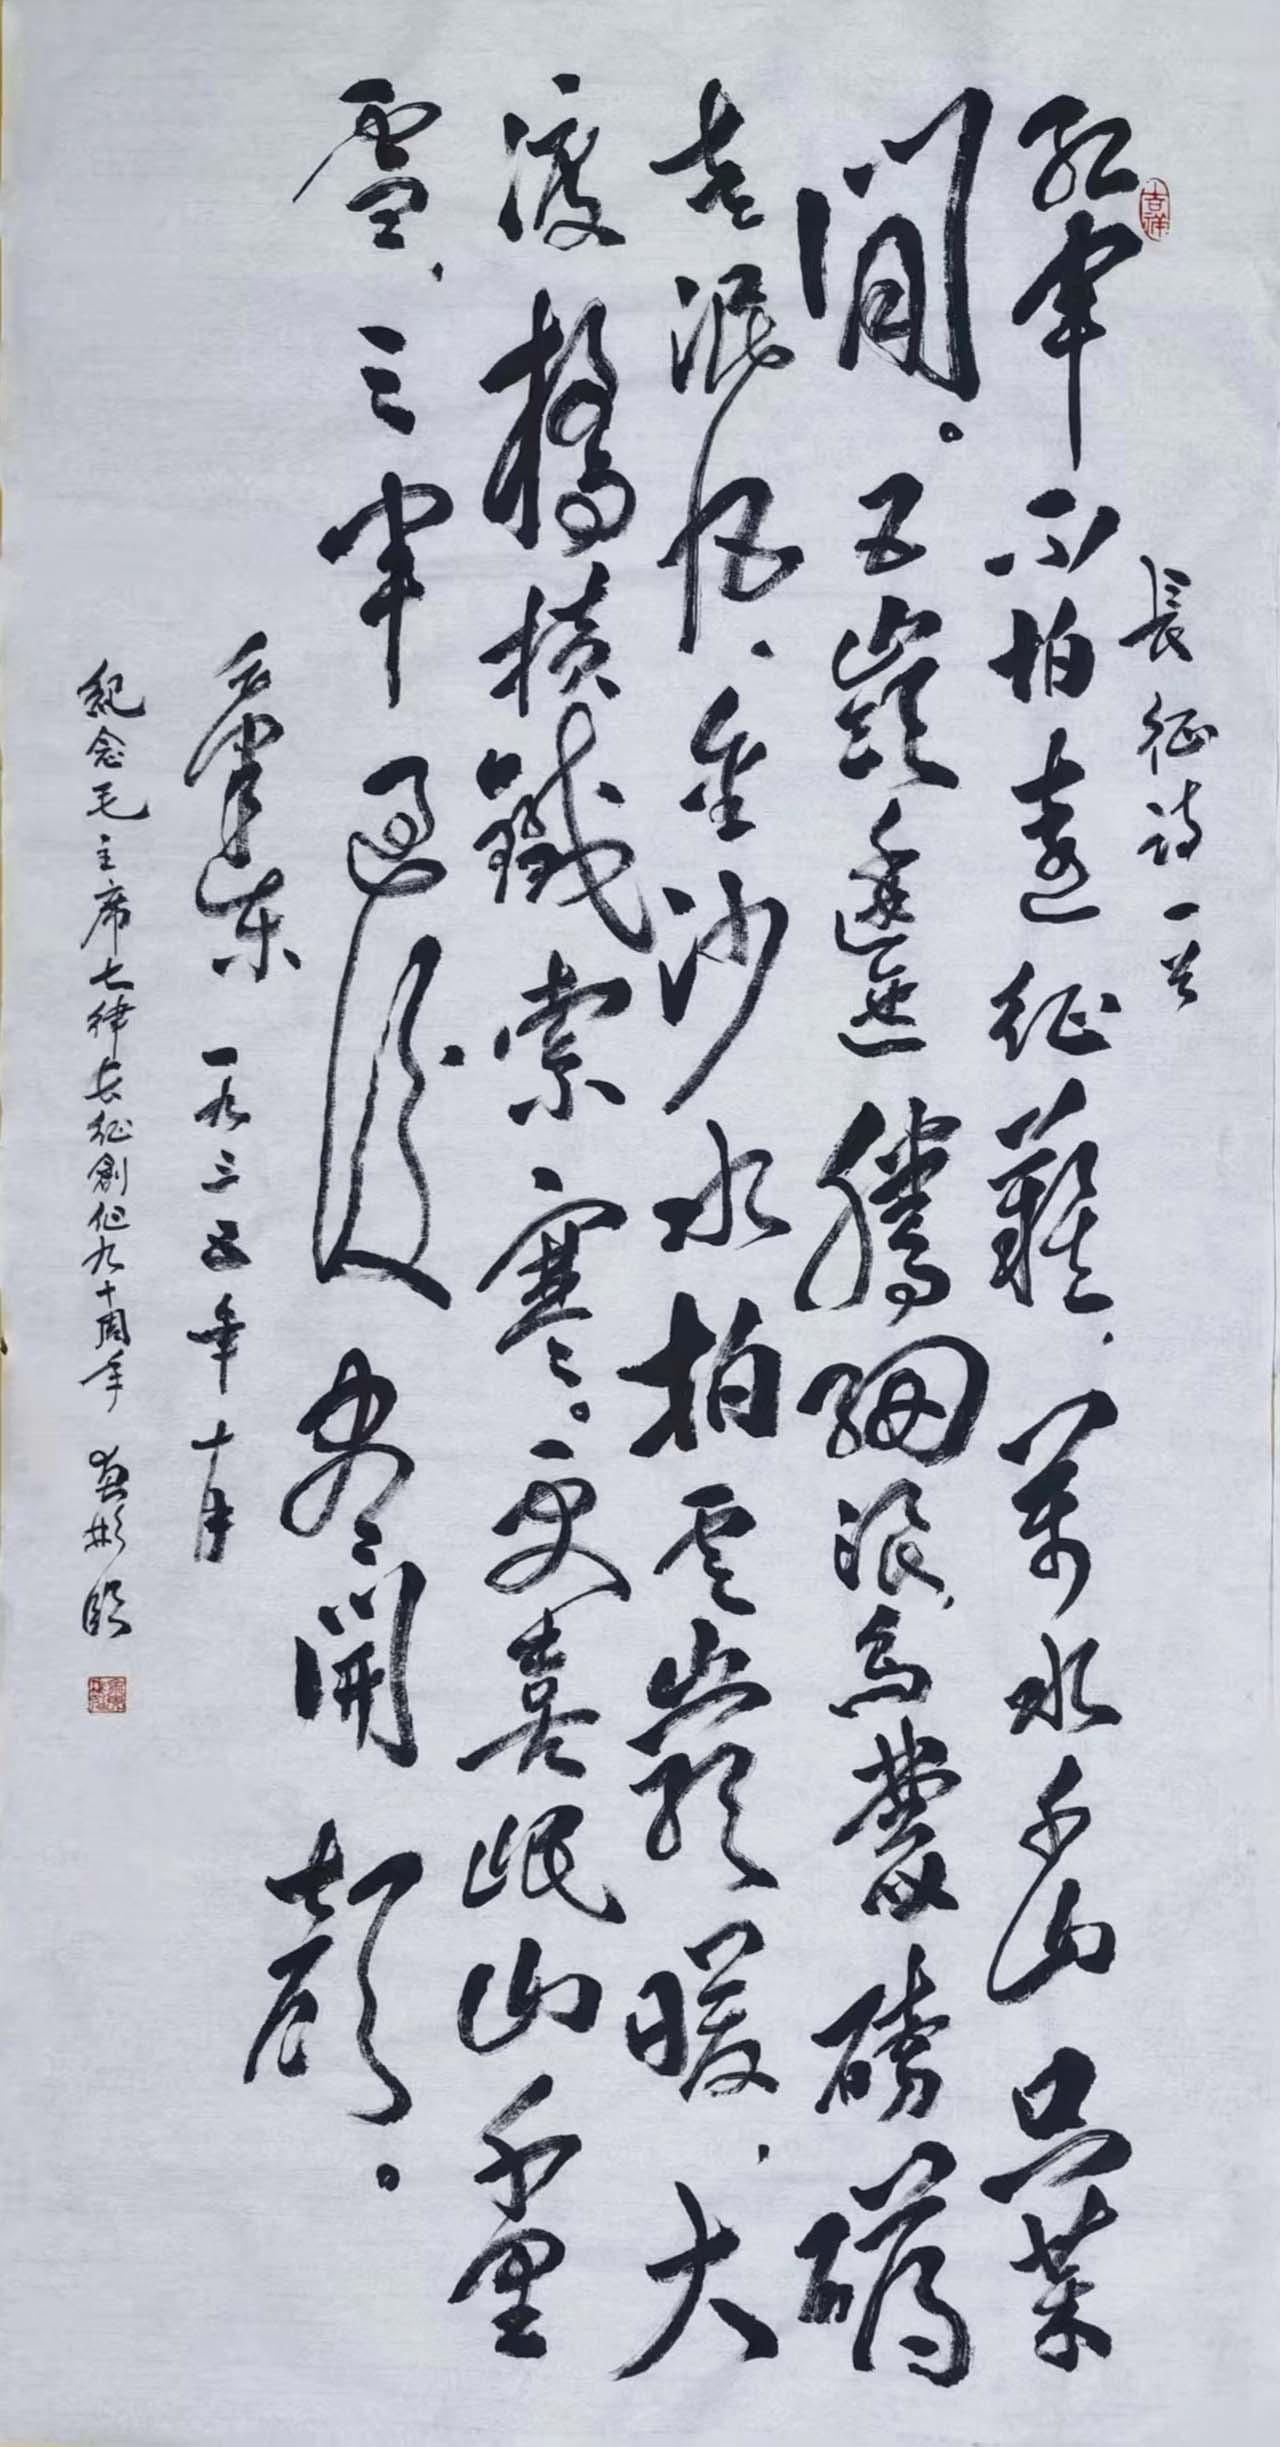 吉祥
長征詩一首
紅軍不怕遠征難，萬水千山只等
閒。五嶺逶迤騰細浪，烏蒙磅礴
走泥丸，金沙水拍雲巖暖，大
渡橋橫鐵索寒。更喜岷山千里
雪，三軍過後盡開顏。
毛澤東 一九三五年十月
紀念毛主席七律长征創作九十周年 彬臨